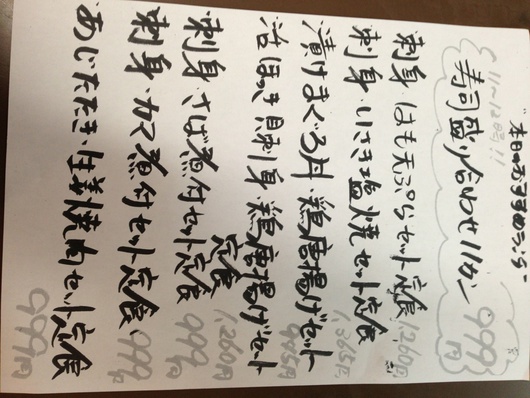 本日のおすすめランチ
11〜12時!!
寿司盛り合わせ11カン 999円
刺身・はも天ぷらセット定食 1,260円
刺身・いさき塩焼セット定食 1,365円
漬けまぐろ丼・鶏唐揚げセット 945円
活ほっき貝刺身・鶏唐揚げセット定食 1,260円
刺身・さば煮付セット定食 999円
刺身・カマ煮付セット定食 999円
あじたたき・生姜焼肉セット定食 999円